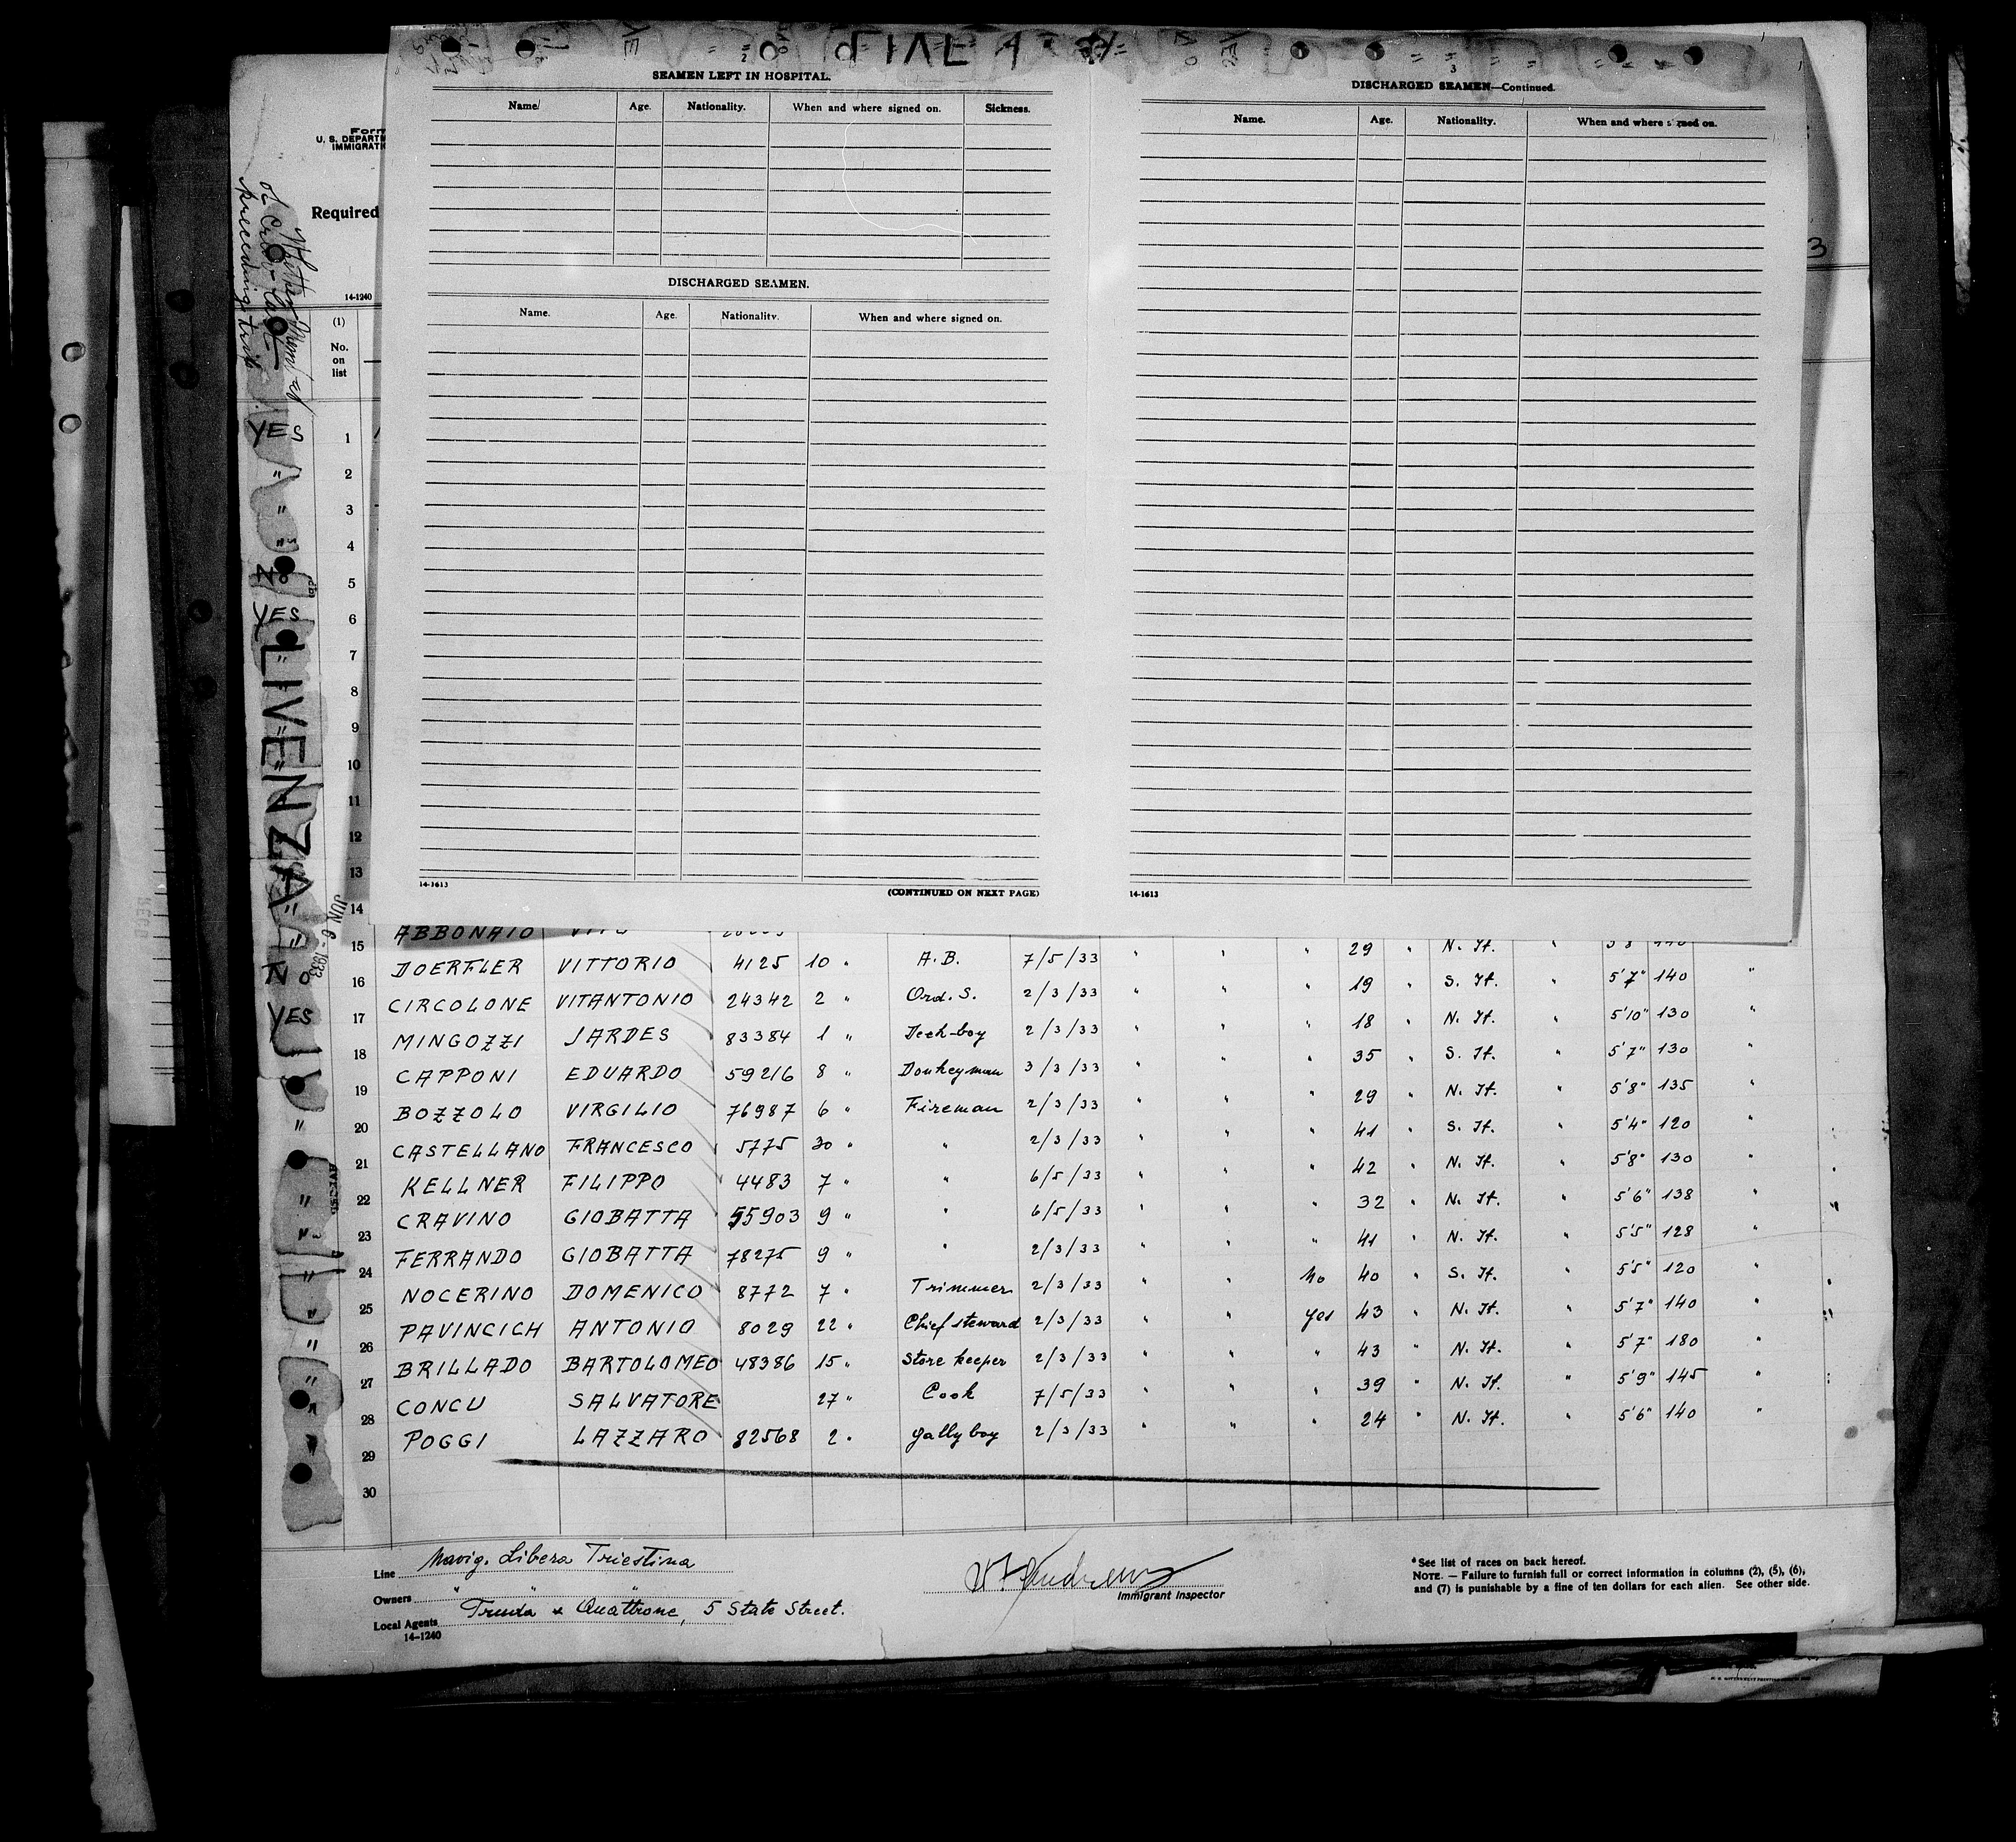 SEAMEN LEFT IN HOSPITAL.
Name
Age.
Nationality.
When and where signed on.
Sickness.
DISCHARGED SEAMEN.
Name.
Age.
Nationality.
When and where signed on.
14-1613
(CONTINUED ON NEXT PAGE)
3
DISCHARGED SEAMEN—Continued.
Name.
Age.
Nationality.
When and where signed on.
14-1613
Form
U. S. DEPARTM
IMMIGRATI
Required
14-1240
Whether Member
of Crew
preceding trip
(1)
No.
on
list
YES 1
" 2
" 3
" 4
No 5
YES 6
7
8
9
10
11
12
13
14
LIVENZA
JUN 6 - 1933
ABBONAIO
15 DOERFLER VITTORIO 4125 10 " A.B. 7/5/33 " " " 29 " N. It. " 5'8"
NO 16 CIRCOLONE VITANTONIO 24342 2 " Ord. S. 2/3/33 " " " 19 " S. It. " 5'7" 140 "
YES 17 MINGOZZI JARDES 83384 1 " Deck-boy 2/3/33 " " " 18 " N. It. " 5'10" 130 "
18 CAPPONI EDUARDO 59216 8 " Donkeyman 3/3/33 " " " 35 " S. It. " 5'7" 130 "
19 BOZZOLO VIRGILIO 76987 6 " Fireman 2/3/33 " " " 29 " N. It. " 5'8" 135 "
" 20 CASTELLANO FRANCESCO 5775 30 " " 2/3/33 " " " 41 " S. It. " 5'4" 120 "
21 KELLNER FILIPPO 4483 7 " " 6/5/33 " " " 42 " N. It. " 5'8" 130 "
" 22 CRAVINO GIOBATTA 55903 9 " " 6/5/33 " " " 32 " N. It. " 5'6" 138 "
" 23 FERRANDO GIOBATTA 78275 9 " " 2/3/33 " " " 41 " N. It. " 5'5" 128 "
" 24 NOCERINO DOMENICO 8772 7 " Trimmer 2/3/33 " " No 40 " S. It. " 5'5" 120 "
" 25 PAVINCICH ANTONIO 8029 22 " Chief steward 2/3/33 " " Yes 43 " N. It. " 5'7" 140 "
" 26 BRILLADO BARTOLOMEO 48386 15 " Store keeper 2/3/33 " " " 43 " N. It. " 5'7" 180 "
" 27 CONCU SALVATORE 27 " Cook 7/5/33 " " " 39 " N. It. " 5'9" 145 "
" 28 POGGI LAZZARO 82568 2 " Gally boy 2/3/33 " " " 24 " N. It. " 5'6" 140 "
29
30
Line Navig. Libera Triestina
Owners " " "
Local Agents Truda & Quattrone, 5 State Street.
14-1240
Immigrant Inspector
*See list of races on back hereof.
NOTE. — Failure to furnish full or correct information in columns (2), (5), (6),
and (7) is punishable by a fine of ten dollars for each alien. See other side.